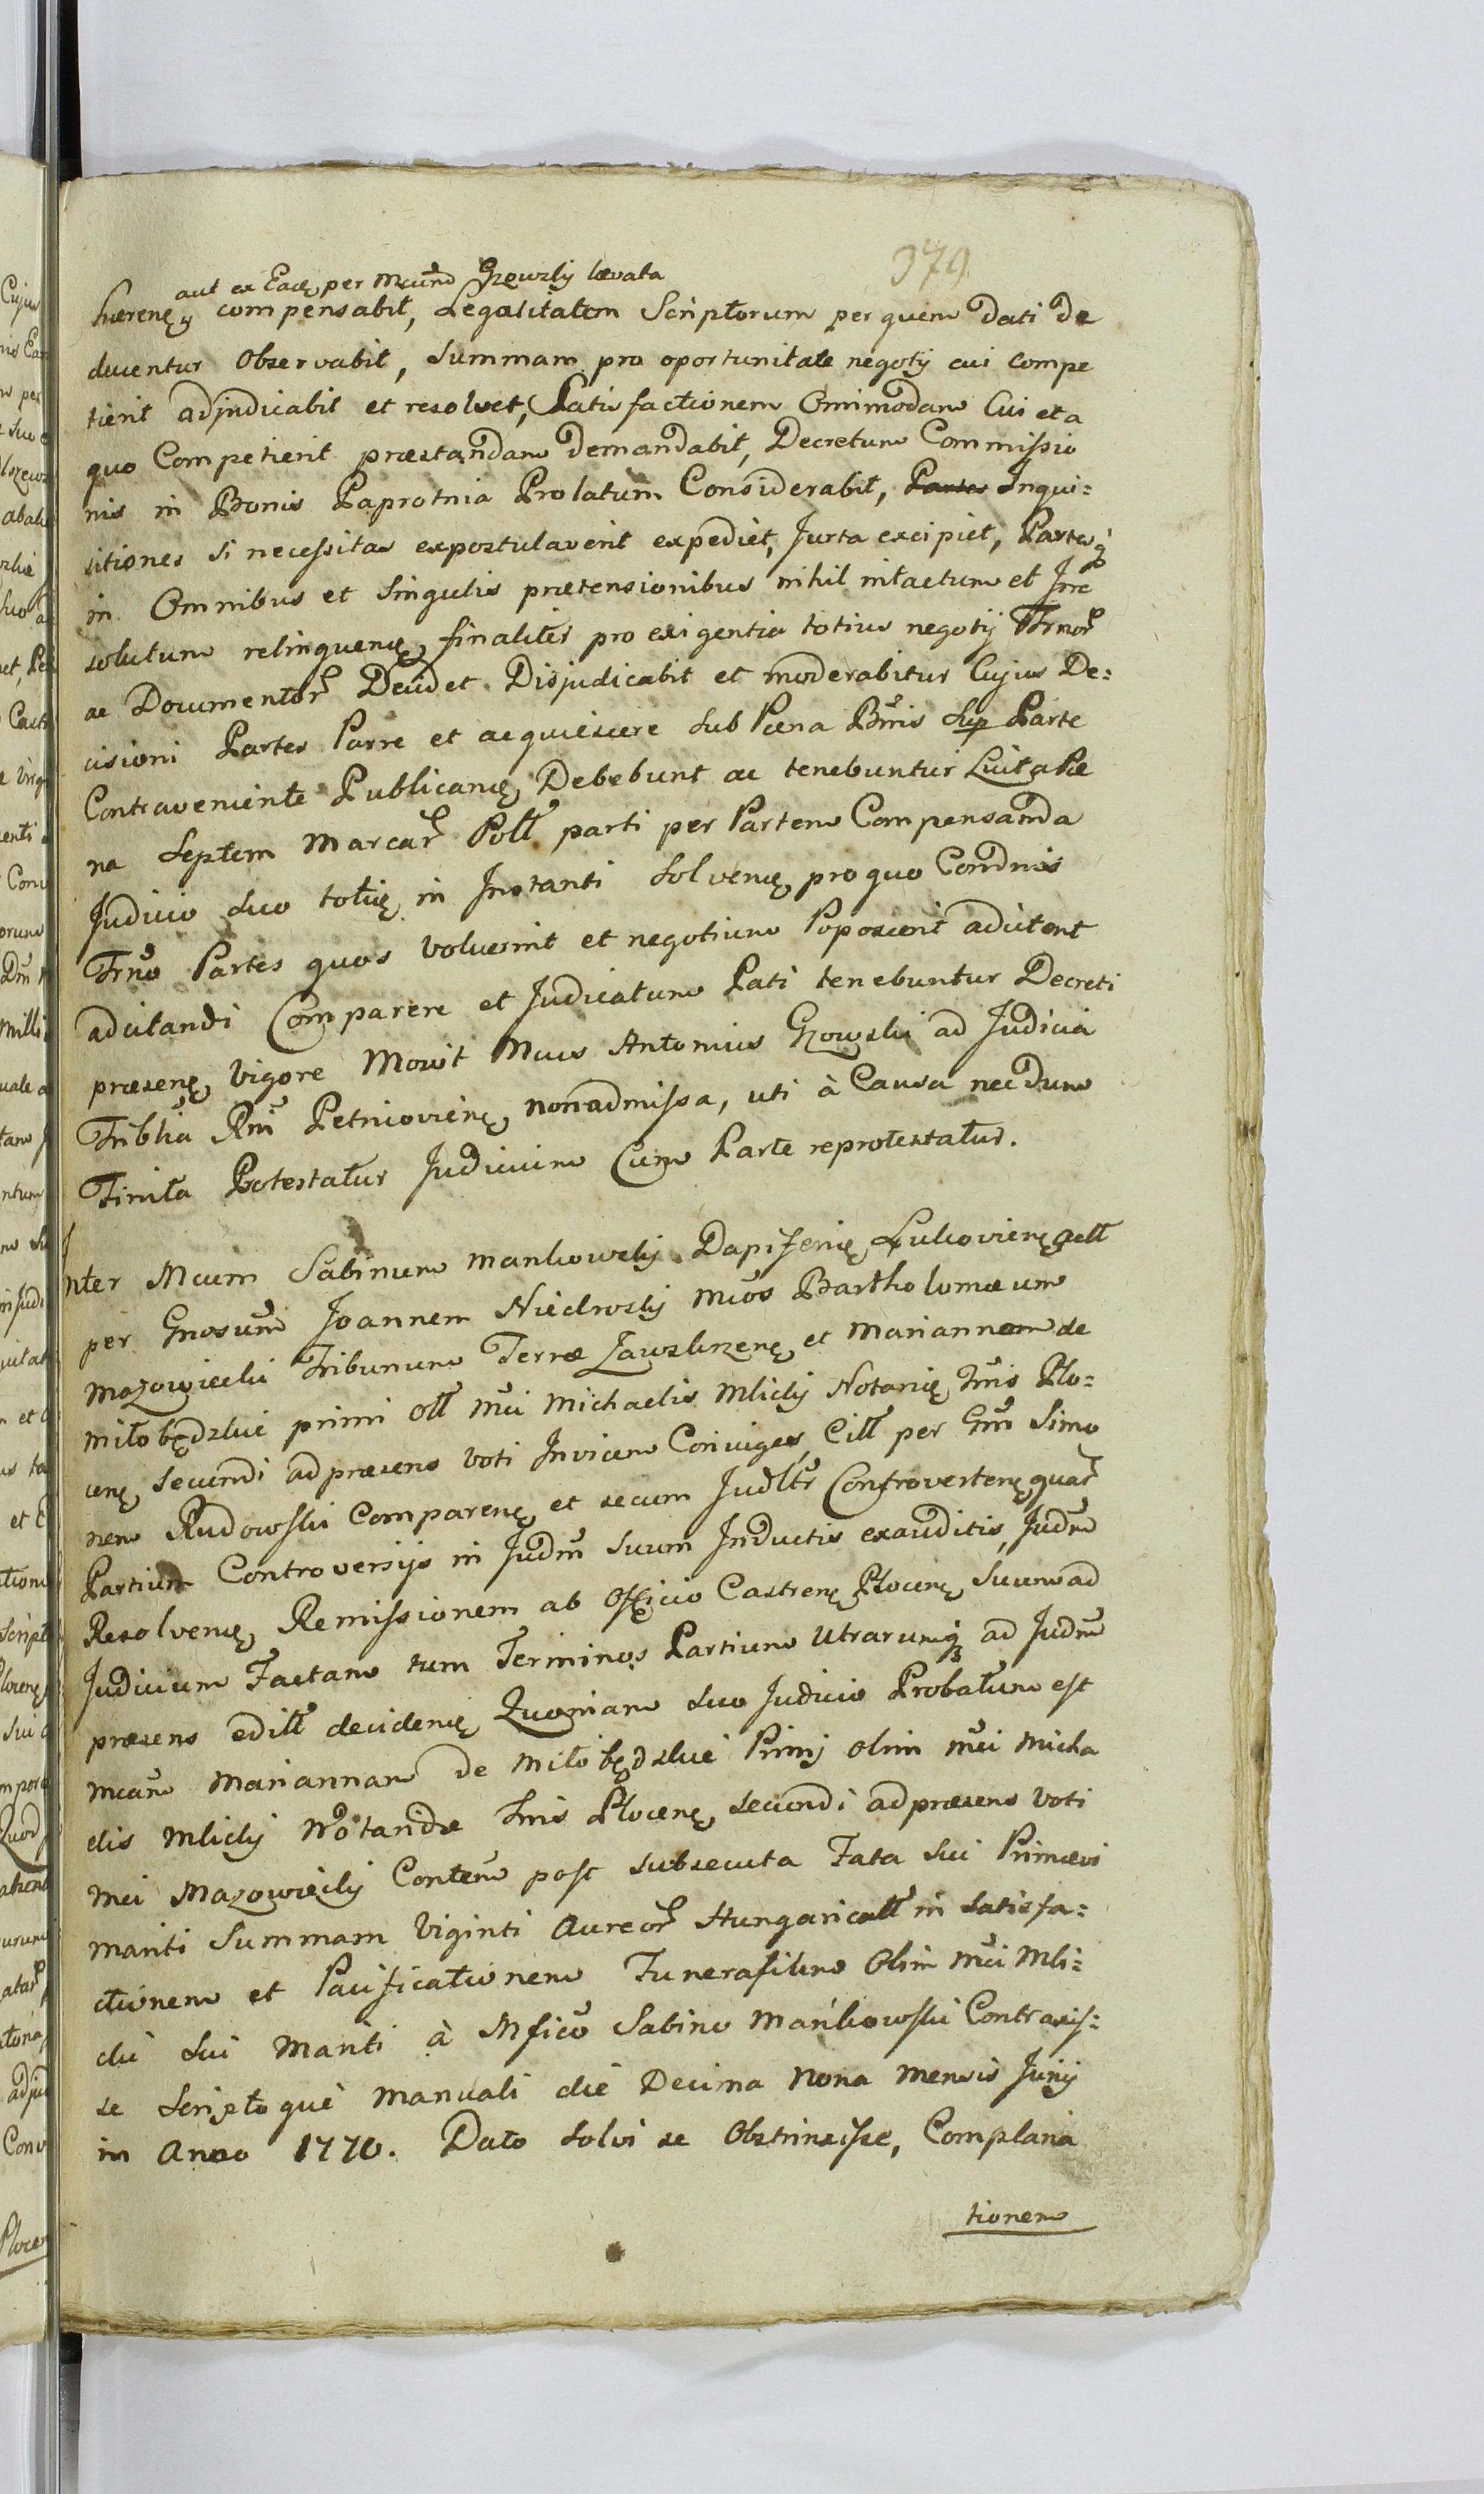 379
aut ex Eaę per Mcum̃ Gzowskÿ levata
hærenę compensabit, Legalitatem Scriptorum per quem Dati de
ducentur Observabit, Summam pro oportunitate negotÿ cui compe
tierit adjudicabit et resolvet, Satisfactionem Omimodam Cui et a
quo Competierit præstandam Demandabit, Decretum Commissio
nis in Bonis Paprotnia Prolatum Considerabit, Partes Inqui=
sitiones si necessitas expostulaverit expediet, Jurta excipiet, Partesq
in Omnibus et Singulis prætensionibus nihil intactum et Irre
solutum relinquenę finaliter pro exigentia totius negotÿ Trnor
ac Documentor Decidet Disjudicabit et moderabitur Cujus De=
cisioni Partes Parre et acquiescere Sub Pæna Bnis Sup Parte
Contraveniente Publicanę Debebunt ac tenebuntur Luita Pæ
na Septem Marcar Poll parti per Partem Compensanda
Judicio Suo totię in Instanti Solvenę pro quo Condnis
Trno Partes quas voluerint et negotium Poposcerit adcitent
adcitandi Comparere et Judicatum Pati tenebuntur Decreti
præsenę vigore Movit Mcus Antonius Gzowski ad Judicia
Triblia Rni Petricovienę non admissa, uti à Causa nec dum
Finita Protestatur Judicium Cum Parte reprotestatur.
Inter Mcum Sabinum Mankowskÿ Dapiferię Lukovienę Actt
per Gnosum Joannem Niedroskÿ Mcos Bartholomæum
Mazowiecki Tribunum Terræ Zawskrzenę et Mariannam de
Miłobędzkie primi Oll Mci Michaelis Mlickÿ Notarię Tris Plo=
cenę Secundi ad præsens voti Invicem Conjuges, Citt per Gm Simo
nem Rudowski Comparenę et secum Judltr Controvertenę quar
Partium Controversÿs in Judm Suum Inductis exauditis, Judm
Resolvenę Remissionem ab Officio Castrenę Plocenę Suum ad
Judicium Factam tum Terminos Partium Utrarumq ad Judm
præsens editt decidenę Quoniam Suo Judicio Probatum est
Mcam Mariannam de Miłobędzkie Primj olim Mci Micha
elis Mlickÿ Notaridæ Tris Plocenę Secundi ad præsens voti
Mci Mazowieckÿ Contem post Subsecuta Fata Sui Primævi
Mariti Summam Viginti Aureor Hungaricall in Satisfa=
ctionem et Pacificationem Funeralium Olim Mci Mli=
cki Sui Mariti à Mfico Sabino Mańkowski Contraxis=
se Scripto que Manuali die Decima Nona Mensis Junÿ
in Anno 1770. Dato Solvi se Obstrinxisse, Complana
tionem